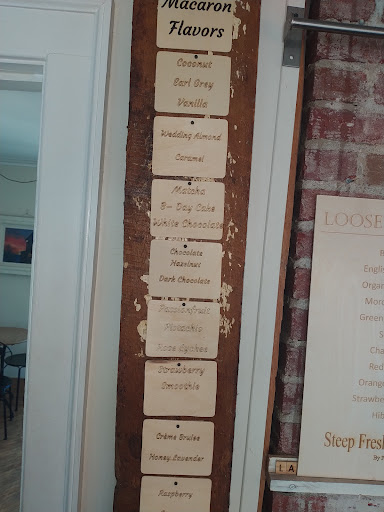 Macaron
Flavors
Coconut
Earl Grey
Vanilla
Wedding Almond
Caramel
Matcha
B- Day Cake
White Chocolate
Chocolate
Hazelnut
Dark Chocolate
Passionfruit
Pistachio
Rose Lychee
Strawberry
Smoothie
Crème Brulee
Honey Lavender
Raspberry
LOOSE
Engli
Orga
Green
Red
Orang
Strawbe
Hib
Steep Fresh
LA